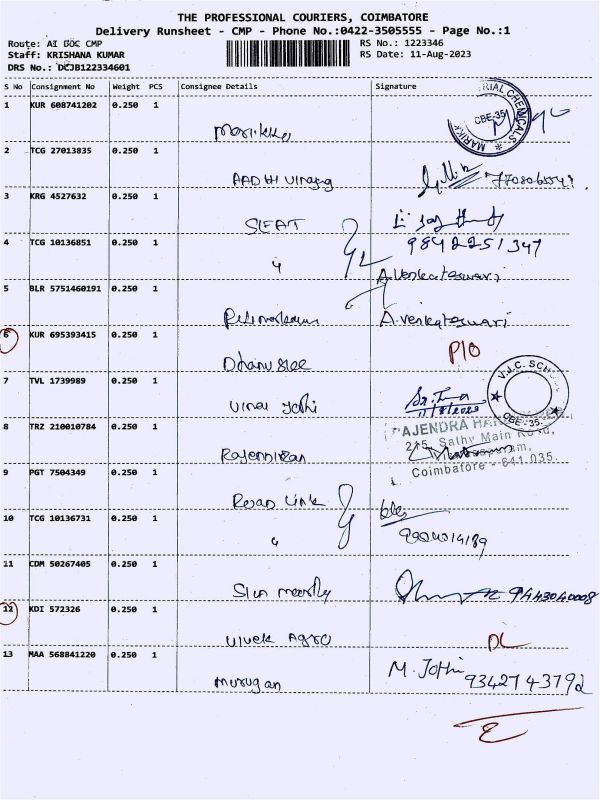 THE PROFESSIONAL COURIERS, COIMBATORE
Delivery Runsheet - CMP - Phone No.:0422-3505555 - Page No.:1
Route: AI GOC CMP
RS No.: 1223346
Staff: KRISHANA KUMAR
RS Date: 11-Aug-2023
DRS No.: DCJB122334601
S No Consignment No Weight PCS Consignee Details Signature
1 KUR 608741202 0.250 1
CBE-35
2 TCG 27013835 0.250 1
3 KRG 4527632 0.250 1
SEAT
4 TCG 10136851 0.250 1
9842251347
"
A.Venkateswari
5 BLR 5751460191 0.250 1
A.venkateswari
6 KUR 695393415 0.250 1
P/O
7 TVL 1739989 0.250 1
V.J.C. SCH
CBE-35.
11/8/2023
8 TRZ 210010784 0.250 1
AJENDRA
215, Sathy Main Road,
Coimbatore - 641 035.
9 PGT 7504349 0.250 1
Road Link
10 TCG 10136731 0.250 1
"
11 CDM 50267405 0.250 1
9443040008
12 KDI 572326 0.250 1
Vivek Agro
DL
13 MAA 568841220 0.250 1
murugan
M. Jothi
9342743792